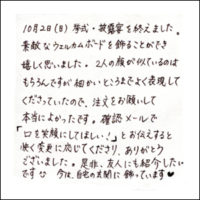 10月2日(日) 挙式・披露宴を終えました。
素敵なウェルカムボードを飾ることができ
嬉しく思いました。2人の顔が似ているのは
もちろんですが細かいところまでよく表現して
くださっていたので、注文をお願いして
本当によかったです。確認メールで
「口を笑顔にしてほしい!」とお伝えすると
快く変更に応じてくださり、ありがとう
ございました。是非、友人にも紹介したい
です 今は、自宅の玄関に飾っています♥